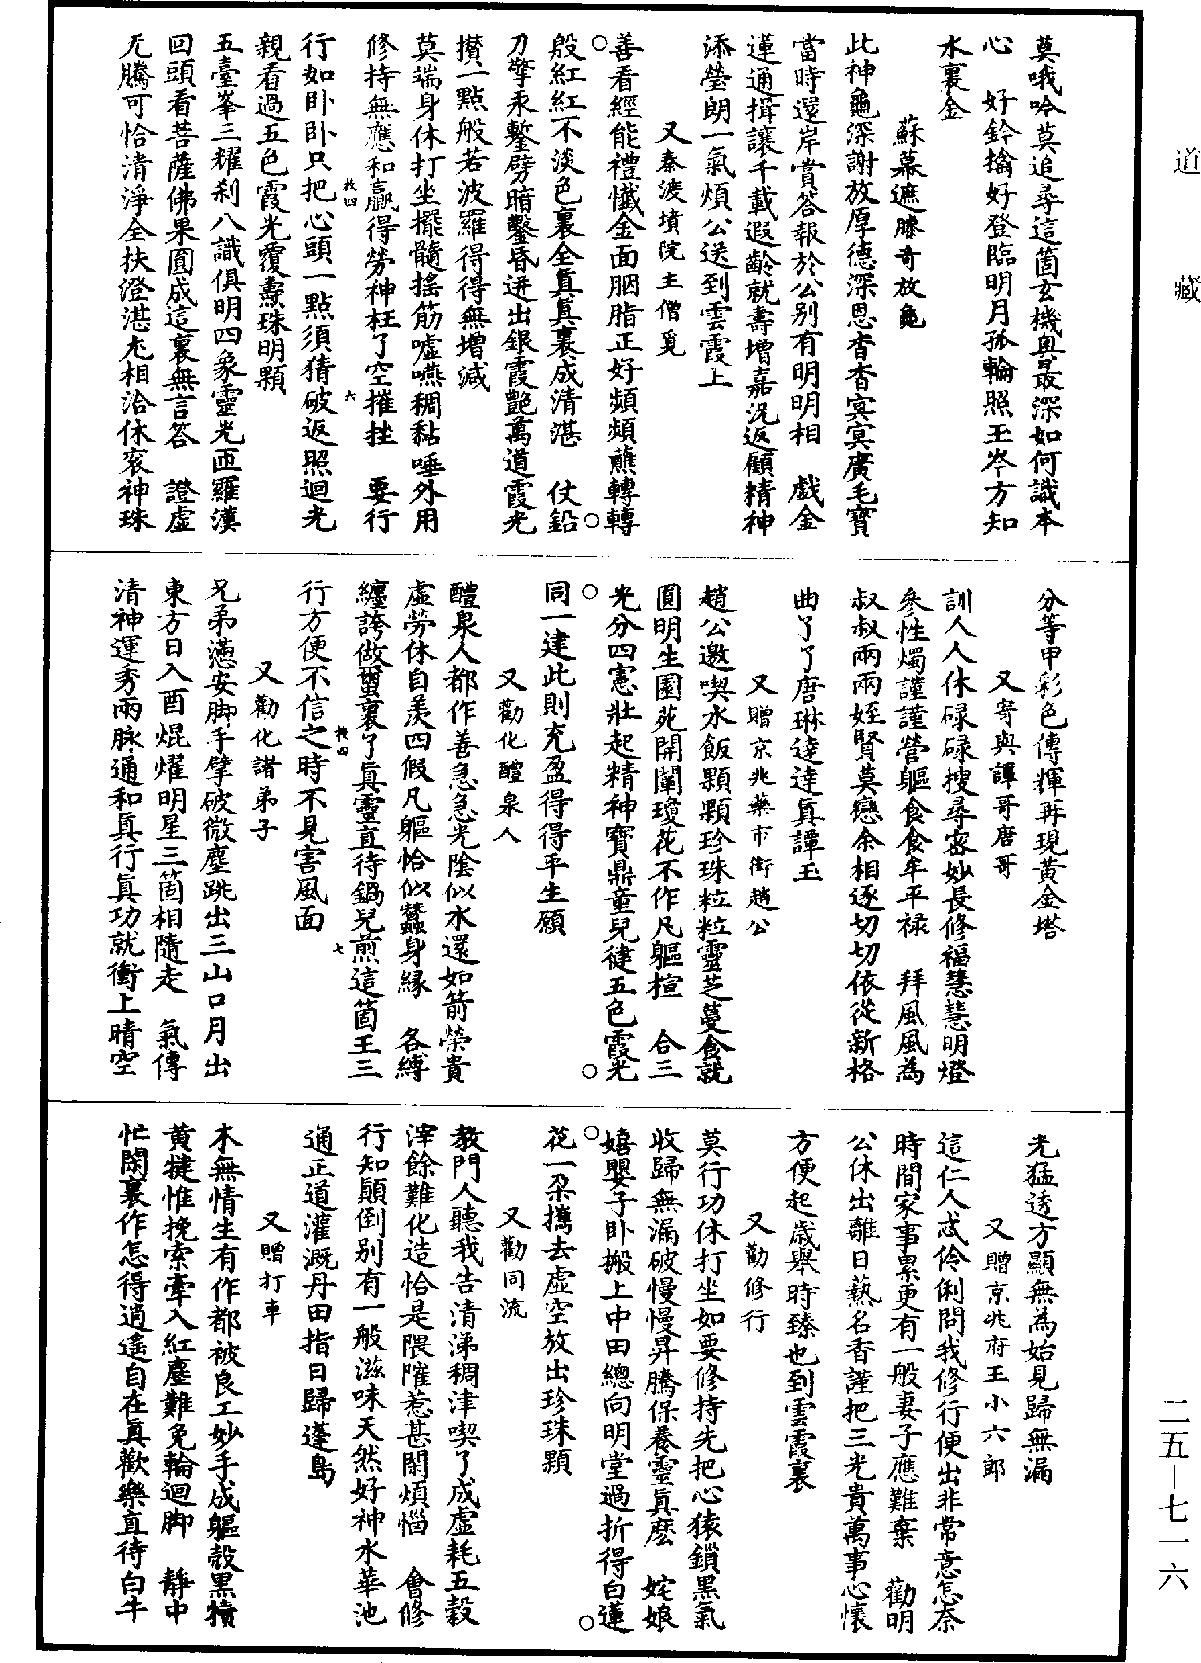 道藏
莫哦吟莫追尋這箇玄機奧最深如何識本
心　好鈴擒好登臨明月孤輪照玉岑方知
水裏金
蘇幕遮滕奇放龜
此神龜深謝放厚德深恩杳杳冥冥廣毛寶
當時還岸賞答報於公別有明明相　戲金
蓮通揖讓千載遐齡就壽增嘉況返顧精神
添瑩朗一氣煩公送到雲霞上
又秦渡墳院主僧覓
善看經能禮懺金面胭脂正好頻頻蘸轉轉
殷紅紅不淡色裏全真真裏成清湛　仗鉛
刀擎汞鏨劈暗鑿昏迸出銀霞艷萬道霞光
攢一點般若波羅得得無增減
莫端身休打坐擺髓搖筋噓嚥稠黏唾外用
修持無應和贏得勞神枉了空摧挫　要行
行如卧卧只把心頭一點須猜破返照迴光
親看過五色霞光覆燾珠明顆
五臺峯三耀剎八識俱明四象靈光匝羅漢
回頭看菩薩佛果圓成這裏無言答　證虛
无騰可恰清淨全扶澄湛尢相洽休衮神珠
分等甲彩色傳輝再現黃金塔
又寄與譚哥唐哥
訓人人休碌碌搜尋密妙長修福慧慧明燈
參性燭謹謹營軀食食年平祿　拜風風為
叔叔兩兩姪賢莫戀余相逐切切依從新格
曲了了唐琳逵逵真譚玉
又贈京兆藥市街趙公
趙公邀喫水飯顆顆珍珠粒粒靈芝蔓食說
圓明生園苑開闡瓊花不作凡軀揎　合三
光分四憲壯起精神寶鼎童兒健五色霞光
同一建此則充盈得得平生願
又勸化醴泉人
醴泉人都作善急急光陰似水還如箭榮貴
虛勞休自羨四假凡軀恰似蠶身緣　各縛
纏誇做蠒裏了真靈直待鍋兒煎這箇王三
行方便不信之時不見害風面
又勸化諸弟子
兄弟懣安脚手擘破微塵跳出三山口月出
東方日入酉焜燿明星三箇相隨走　氣傳
清神運秀兩脉通和真行真功就衝上晴空
光猛透方顯無為始見歸無漏
又贈京兆府王小六郎
這仁人忒伶俐問我修行便出非常意怎奈
時間家事累更有一般妻子應難棄　勸明
公休出離日熱名香謹把三光貴萬事心懷
方便起歲舉時臻也到雲霞裏
又勸修行
莫行功休打坐如要修持先把心猿鎖黑氣
收歸無漏破慢慢昇騰保養靈真麽　姹娘
嬉嬰子卧搬上中田總向明堂過折得白蓮
花一朶攜去虛空放出珍珠顆
又勸同流
教門人聽我告清涕稠津喫了成虛耗五穀
滓餘難化造恰是隈隴惹甚閑煩惱　會修
行知顛倒別有一般滋味天然好神水華池
通正道灌溉丹田指日歸蓬島
又贈打車
木無情生有作都被良工妙手成軀殼黑犢
黃犍惟挽索牽入紅塵難免輪迴脚　靜中
忙閑裏作怎得逍遙自在真歡樂直待白牛
二五—七一六